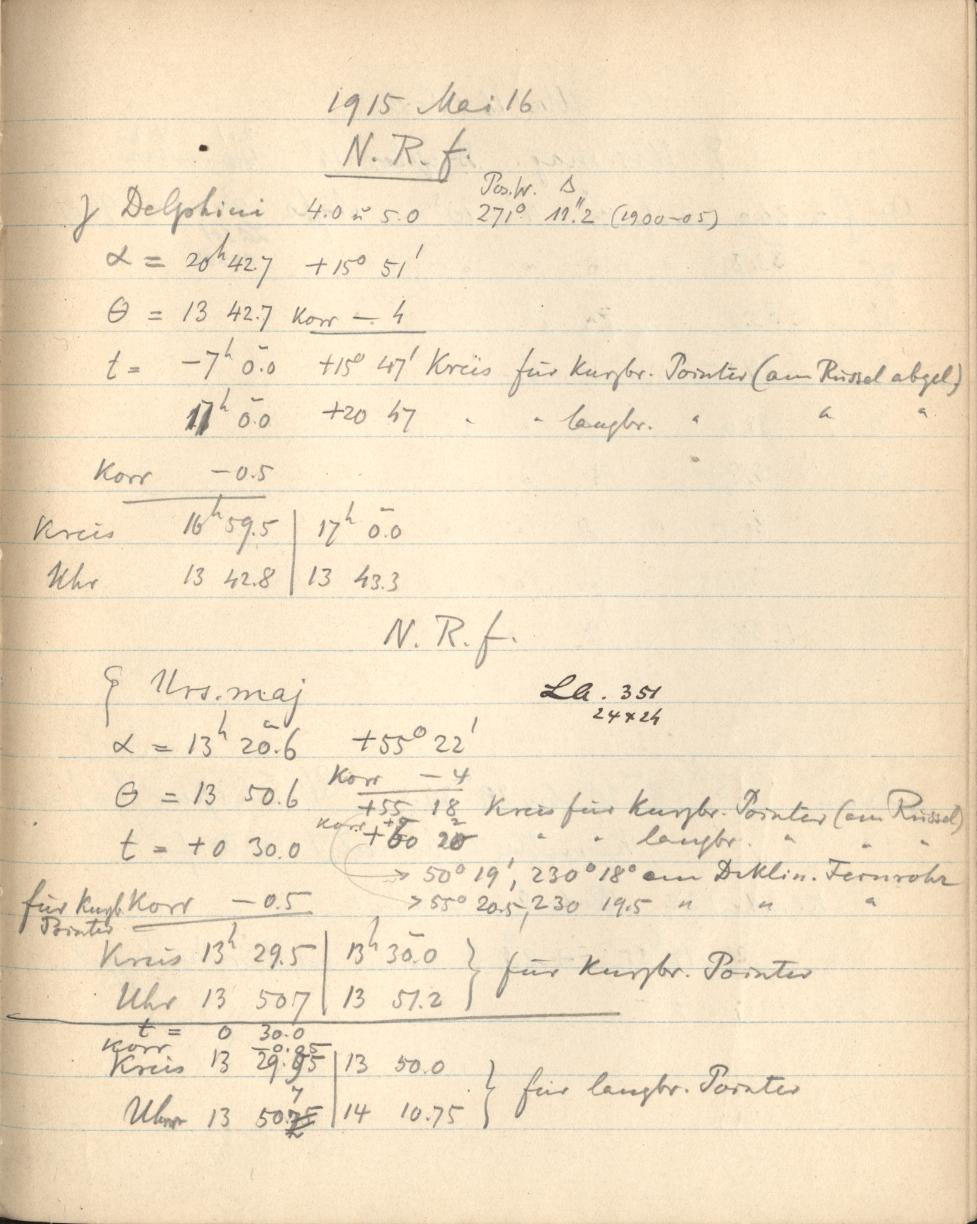 1915 Mai 16
N. R. f.
Pos.w. Δ
γ Delphini 4.0 u 5.0 271° 11".2 (1900-05)
α = 20h 42.7 +15° 51'
θ = 13 42.7 Korr - 4
t = -7h 0.0 +15° 47' Kreis für Kurzbr. Pointer (am Rüssel abgel.)
17h 0.0 +20 47 " " langbr. " " "
Korr -0.5
Kreis 16h 59.5 | 17h 0.0
Uhr 13 42.8 | 13 43.3
N. R. f.
ζ Urs. maj
La. 351
24x24
α = 13h 20.6 +55° 22'
Korr - 4
θ = 13 50.6 +55 18 Kreis für Kurzbr. Pointer (am Rüssel)
t = +0 30.0 Korr +60 20 " " langbr. " " "
> 50° 19', 230° 18° am Deklin. Fernrohr
für Kurzb. Korr -0.5 > 55° 20.5, 230 19.5 " " "
Pointer
Kreis 13h 29.5 | 13h 30.0 } für Kurzbr. Pointer
Uhr 13 50.7 | 13 51.2
t = 0 30.0
Korr
Kreis 13 | 13 50.0 } für langbr. Pointer
Uhr 13 | 14 10.75